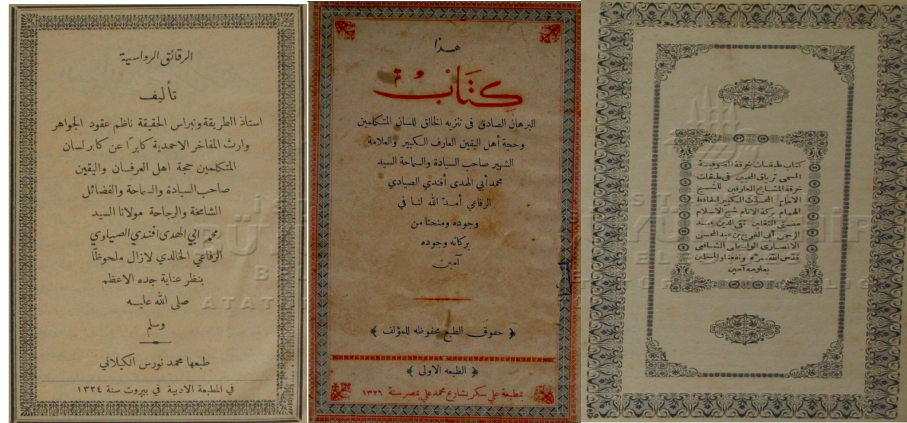 الرقائق الرواسية
تأليف
استاذ الطريقة ونبراس الحقيقة ناظم عقود الجواهر
وارث المفاخر الاحمدية كابرًا عن كابر لسان
المتكلمين حجة اهل العرفان واليقين
صاحب السيادة والسماحة والفضائل
الشامخة والرجاحة مولانا السيد
محمد ابي الهدى افندي الصيادي
الرفاعي الخالدي لازال ملحوظًا
بنظر عناية جده الاعظم
صلى الله عليه
وسلم
طبعها محمد نورس الكيلاني
في المطبعة الادبية في بيروت سنة ١٣٢٤
هذا
كتاب
البرهان الصادق في تنزيه الخالق للسان المتكلمين
وحجة أهل اليقين العارف الكبير والعلامة
الشهير صاحب السيادة والسماحة السيد
محمد أبي الهدى أفندي الصيادي
الرفاعي أمد الله لنا في
وجوده ومنحنا من
بركاته وجوده
آمين
﴿ حقوق الطبع محفوظه للمؤلف ﴾
﴿ الطبعه الاولى ﴾
بمطبعة علي سكر بشارع محمد علي بمصر سنة ١٣٢٦
كتاب طبقات خرقة الصوفية
المسمى ترياق المحبين في طبقات
خرقة المشايخ العارفين للشيخ
الامام المحدث الكبير الحافظ
الهمام بركة الانام شيخ الاسلام
مفتى الثقلين تقى الدين عبد
الرحمن أبى الفرج بن عبد المحسن
الانصارى الواسطى الشافعى
قدس الله سره ونفعنا والمسلمين
بعلومه آمين